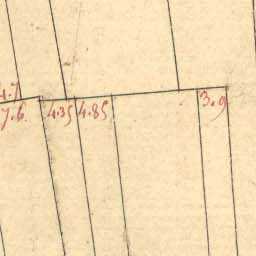 4.7
7.6 4.35 4.85 3.9